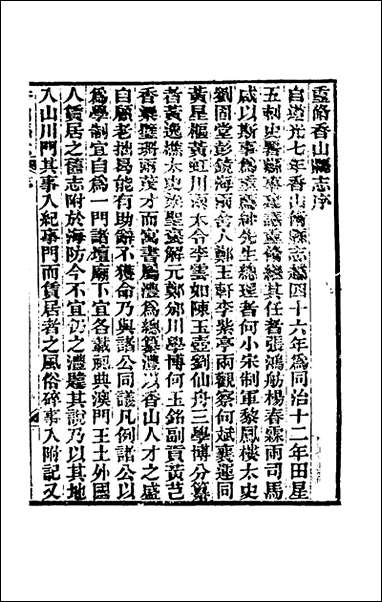 重脩香山縣志序
自道光七年香山脩縣志越四十六年爲同治十二年田星
五刺史署縣事議重脩縣其任者張鴻舫楊春霖兩司馬
咸以斯事爲重薦紳先生總理者何小宋制軍黎鳳樓太史
劉固堂彭鏡海兩舍人鄭玉軒李紫亭兩觀察何斌襄運同
黃星樞黃虹川兩大令李雲如陳玉壺劉仙舟三學博分纂
者黃逸樵太史陳聖襄解元鄭𨛦川學博何玉銘副貢黃芑
香業璧珊兩茂才而寓書屬灃爲總纂灃以香山人才之盛
自顧老拙曷能有助辭不獲命乃與諸公同議凡例諸公以
爲學制宜自爲一門諸壇廟下宜各載祀典澳門王土外國
人賃居之舊志附於海防今不宜仍之灃韙其說乃以其地
入山川門其事入紀事門而賃居者之風俗碎事入附記又